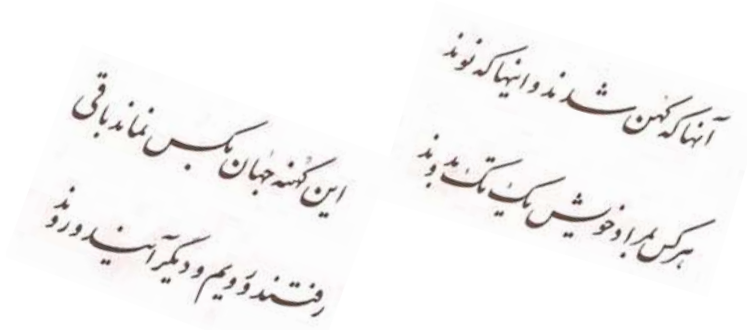 آنها که کهن شدند و اینها که نوند
هر کس بمراد خویش یک تک بدوند
این کهنه جهان بکس نماند باقی
رفتند و رویم و دیگر آیند و روند